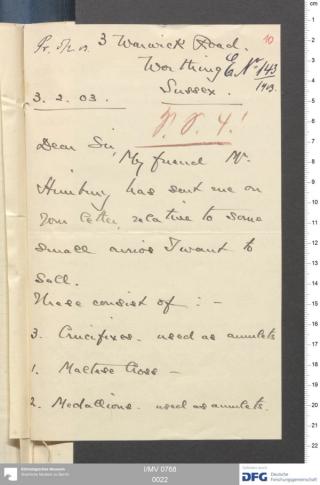 3 Warwick Road.
10
Worthing
E. No 143
1903.
Sussex.
3. 2. 03.
P. T. 4!
Dear Sir
My friend Mr.
has sent me on
your letter, relative to some
small curios I want to
sell.
These consist of : -
3. Crucifixes. used as amulets
1. Maltese Cross -
2. Medallions. used as amulets.
Ethnologisches Museum
Staatliche Museen zu Berlin
I/MV 0766
0022
gefördert durch
DFG Deutsche
Forschungsgemeinschaft
cm
1
2
3
4
5
6
7
8
9
10
11
12
13
14
15
16
17
18
19
20
21
22